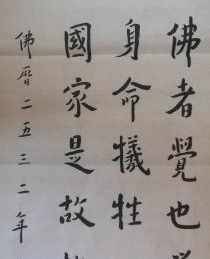 佛者覺也
身命犧牲
國家是故
佛曆二五三二年